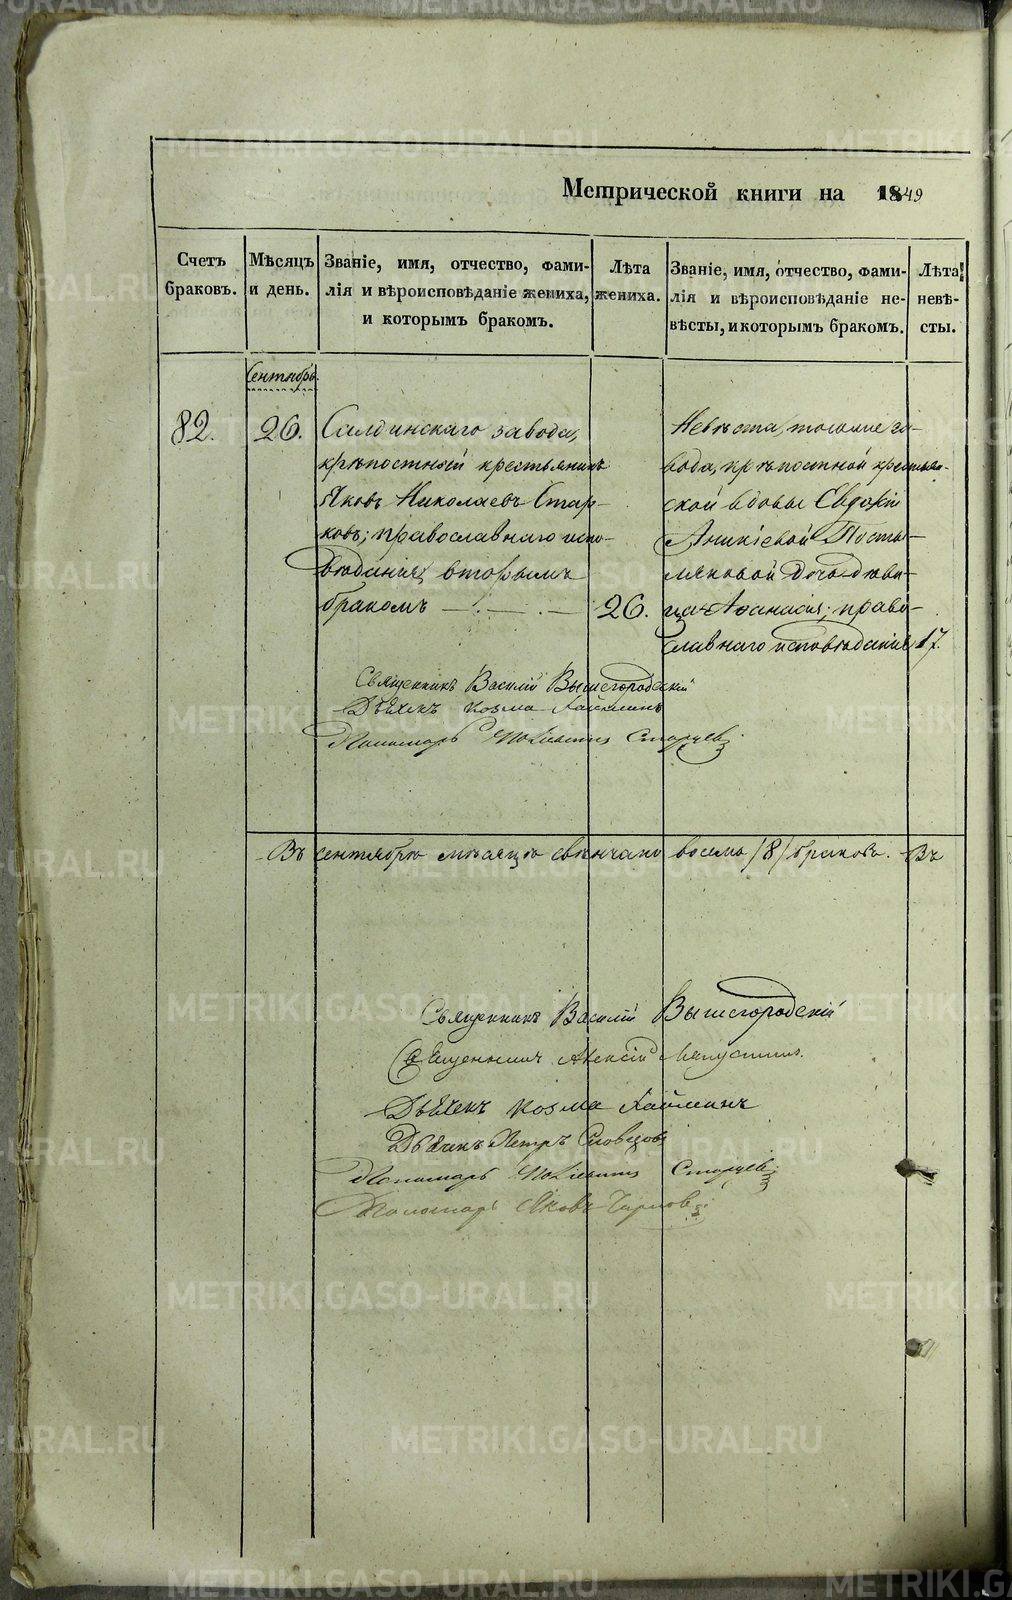 Метрической книги на 1849
Счетъ браковъ.
Мѣсяцъ и день.
Званіе, имя, отчество, фами-
лія и вѣроисповѣданіе жениха,
и которымъ бракомъ.
Лѣта
жениха.
Званіе, имя, отчество, фами-
лія и вѣроисповѣданіе не-
вѣсты, и которымъ бракомъ.
Лѣта
невѣ-
сты.
Сентябрь.
82.
26.
Салдинскаго завода,
крѣпостный крестьянинъ
Яковъ Николаевъ Стар-
ковъ; православнаго испо-
вѣданія, вторымъ
бракомъ
26.
Невѣста, тогоже за-
вода, крѣпостной крестьян-
ской вдовы Евдокіи
Аникіевой Посты-
ляковой дочь дѣви-
ца Афанасія; право-
славнаго исповѣданія
17.
Священникъ Василій Вышегородскій
Дьячекъ Козма Хайминъ
Пономарь Старцевъ
Въ сентябрѣ мѣсяцѣ свѣнчано восемь /8/ браковъ. Въ
Священникъ Василій Вышегородскій
Священникъ Алексій Ляпустинъ.
Дьячекъ Козма Хайминъ
Дьячекъ Петръ Словцовъ
Пономарь Старцевъ
Пономарь Яковъ
METRIKI.GASO-URAL.RU